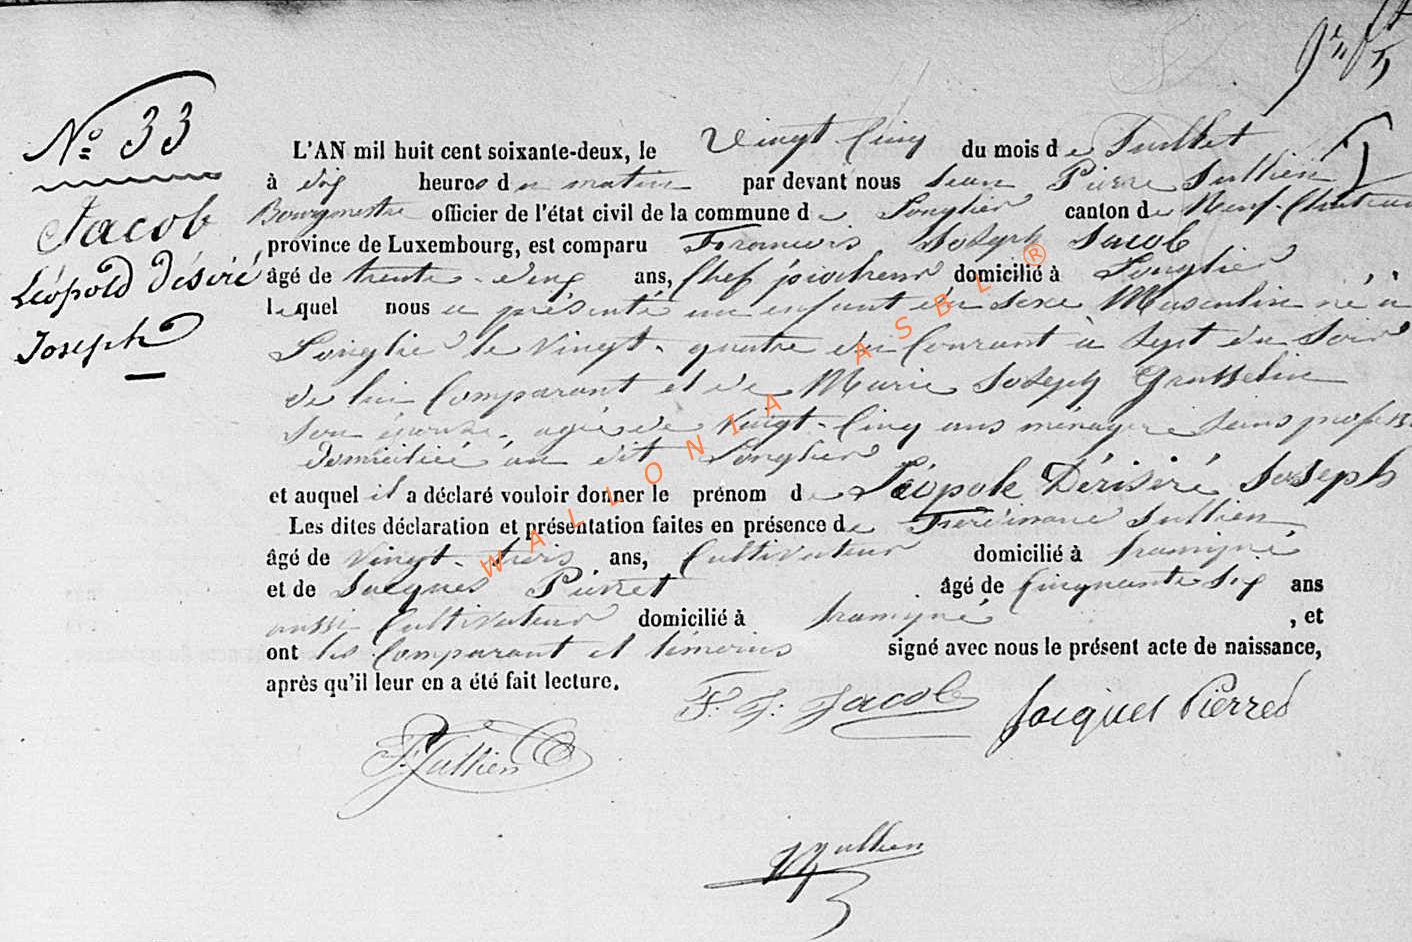 N° 33
Jacob
Léopold Désiré
Joseph
L'AN mil huit cent soixante-deux, le Vingt-Cinq du mois de Juillet
à dix heures du matin par devant nous Jean Pierre Jullien
Bourgmestre officier de l'état civil de la commune de Longlier canton de Neuf-Chateau
province de Luxembourg, est comparu Francois Joseph Jacob
âgé de trente-cinq ans, Chef piocheur domicilié à Longlier
lequel nous a présenté un enfant du sexe Masculin né à
Longlier le Vingt-quatre du Courant à Sept du Soir
de lui Comparant et de Marie Joseph Grosselin
Son épouse, agée de Vingt-Cinq ans ménagère sans profess
domiciliée au dit Longlier
et auquel il a déclaré vouloir donner le prénom de Léopole Dérisiré Joseph
Les dites déclaration et présentation faites en présence de Ferdinand Jullien
âgé de Vingt-trois ans, Cultivateur domicilié à hamipré
et de Jacques Pierret âgé de Cinquante Six ans
aussi Cultivateur domicilié à hamipré, et
ont les Comparant et témoins signé avec nous le présent acte de naissance,
après qu'il leur en a été fait lecture.
F. J. Jacob Jacques Pierred
F. Jullien
Jullien
WALLONIA ASBL ®